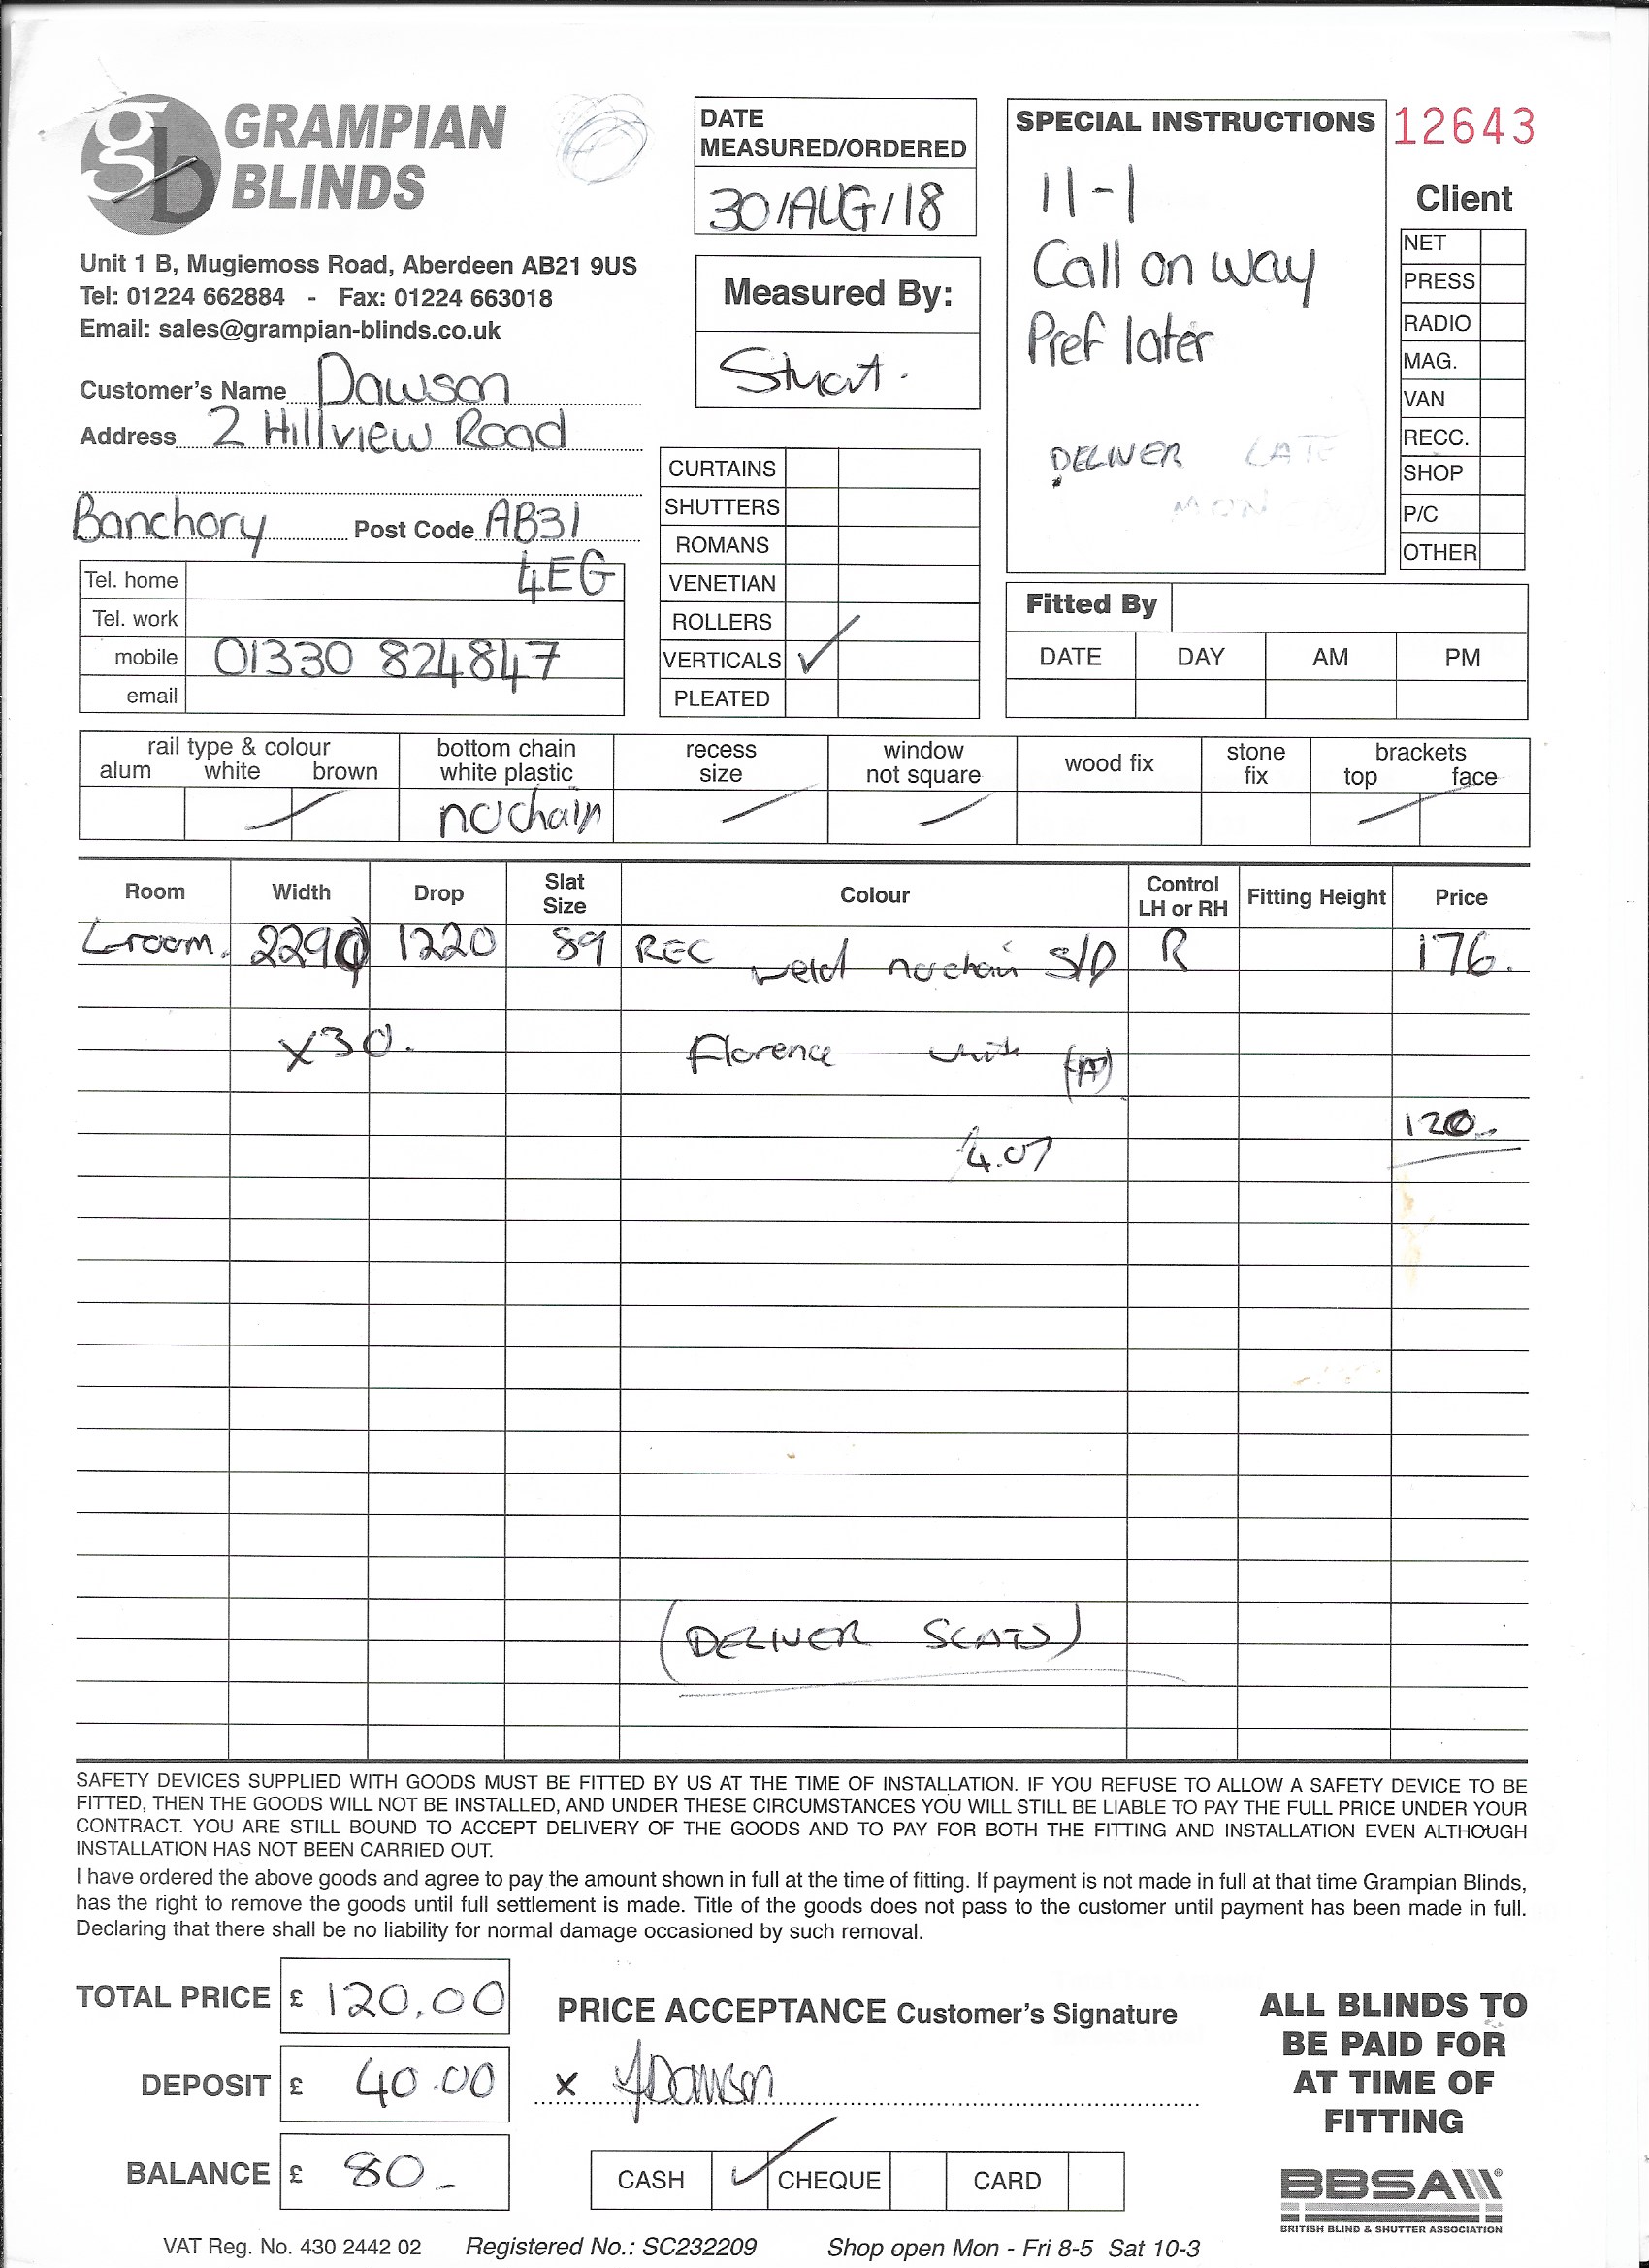 GRAMPIAN
BLINDS
Unit 1 B, Mugiemoss Road, Aberdeen AB21 9US
Tel: 01224 662884 - Fax: 01224 663018
Email: sales@grampian-blinds.co.uk
Customer's Name Dawson
Address 2 Hillview Road
Banchory Post Code AB31
4EG
Tel. home
Tel. work
mobile 01330 824847
email
DATE
MEASURED/ORDERED
30/AUG/18
Measured By:
Stuart.
CURTAINS
SHUTTERS
ROMANS
VENETIAN
ROLLERS
VERTICALS ✓
PLEATED
SPECIAL INSTRUCTIONS
11-1
Call on way
Pref later
DELIVER LATE
12643
Client
NET
PRESS
RADIO
MAG.
VAN
RECC.
SHOP
P/C
OTHER
Fitted By
DATE DAY AM PM
rail type & colour bottom chain recess window wood fix stone brackets
alum white brown white plastic size not square fix top face
no chain
Room Width Drop Slat Size Colour Control LH or RH Fitting Height Price
L-room. 2290 1220 89 REC weld no chain S/D R 176.
x30. Florence white (A)
120.
4.07
(DELIVER SLATS)
SAFETY DEVICES SUPPLIED WITH GOODS MUST BE FITTED BY US AT THE TIME OF INSTALLATION. IF YOU REFUSE TO ALLOW A SAFETY DEVICE TO BE
FITTED, THEN THE GOODS WILL NOT BE INSTALLED, AND UNDER THESE CIRCUMSTANCES YOU WILL STILL BE LIABLE TO PAY THE FULL PRICE UNDER YOUR
CONTRACT. YOU ARE STILL BOUND TO ACCEPT DELIVERY OF THE GOODS AND TO PAY FOR BOTH THE FITTING AND INSTALLATION EVEN ALTHOUGH
INSTALLATION HAS NOT BEEN CARRIED OUT.
I have ordered the above goods and agree to pay the amount shown in full at the time of fitting. If payment is not made in full at that time Grampian Blinds,
has the right to remove the goods until full settlement is made. Title of the goods does not pass to the customer until payment has been made in full.
Declaring that there shall be no liability for normal damage occasioned by such removal.
TOTAL PRICE £ 120.00
DEPOSIT £ 40.00
BALANCE £ 80-
PRICE ACCEPTANCE Customer's Signature
x Dawson
CASH ✓ CHEQUE CARD
ALL BLINDS TO
BE PAID FOR
AT TIME OF
FITTING
BBSA
BRITISH BLIND & SHUTTER ASSOCIATION
VAT Reg. No. 430 2442 02 Registered No.: SC232209 Shop open Mon - Fri 8-5 Sat 10-3